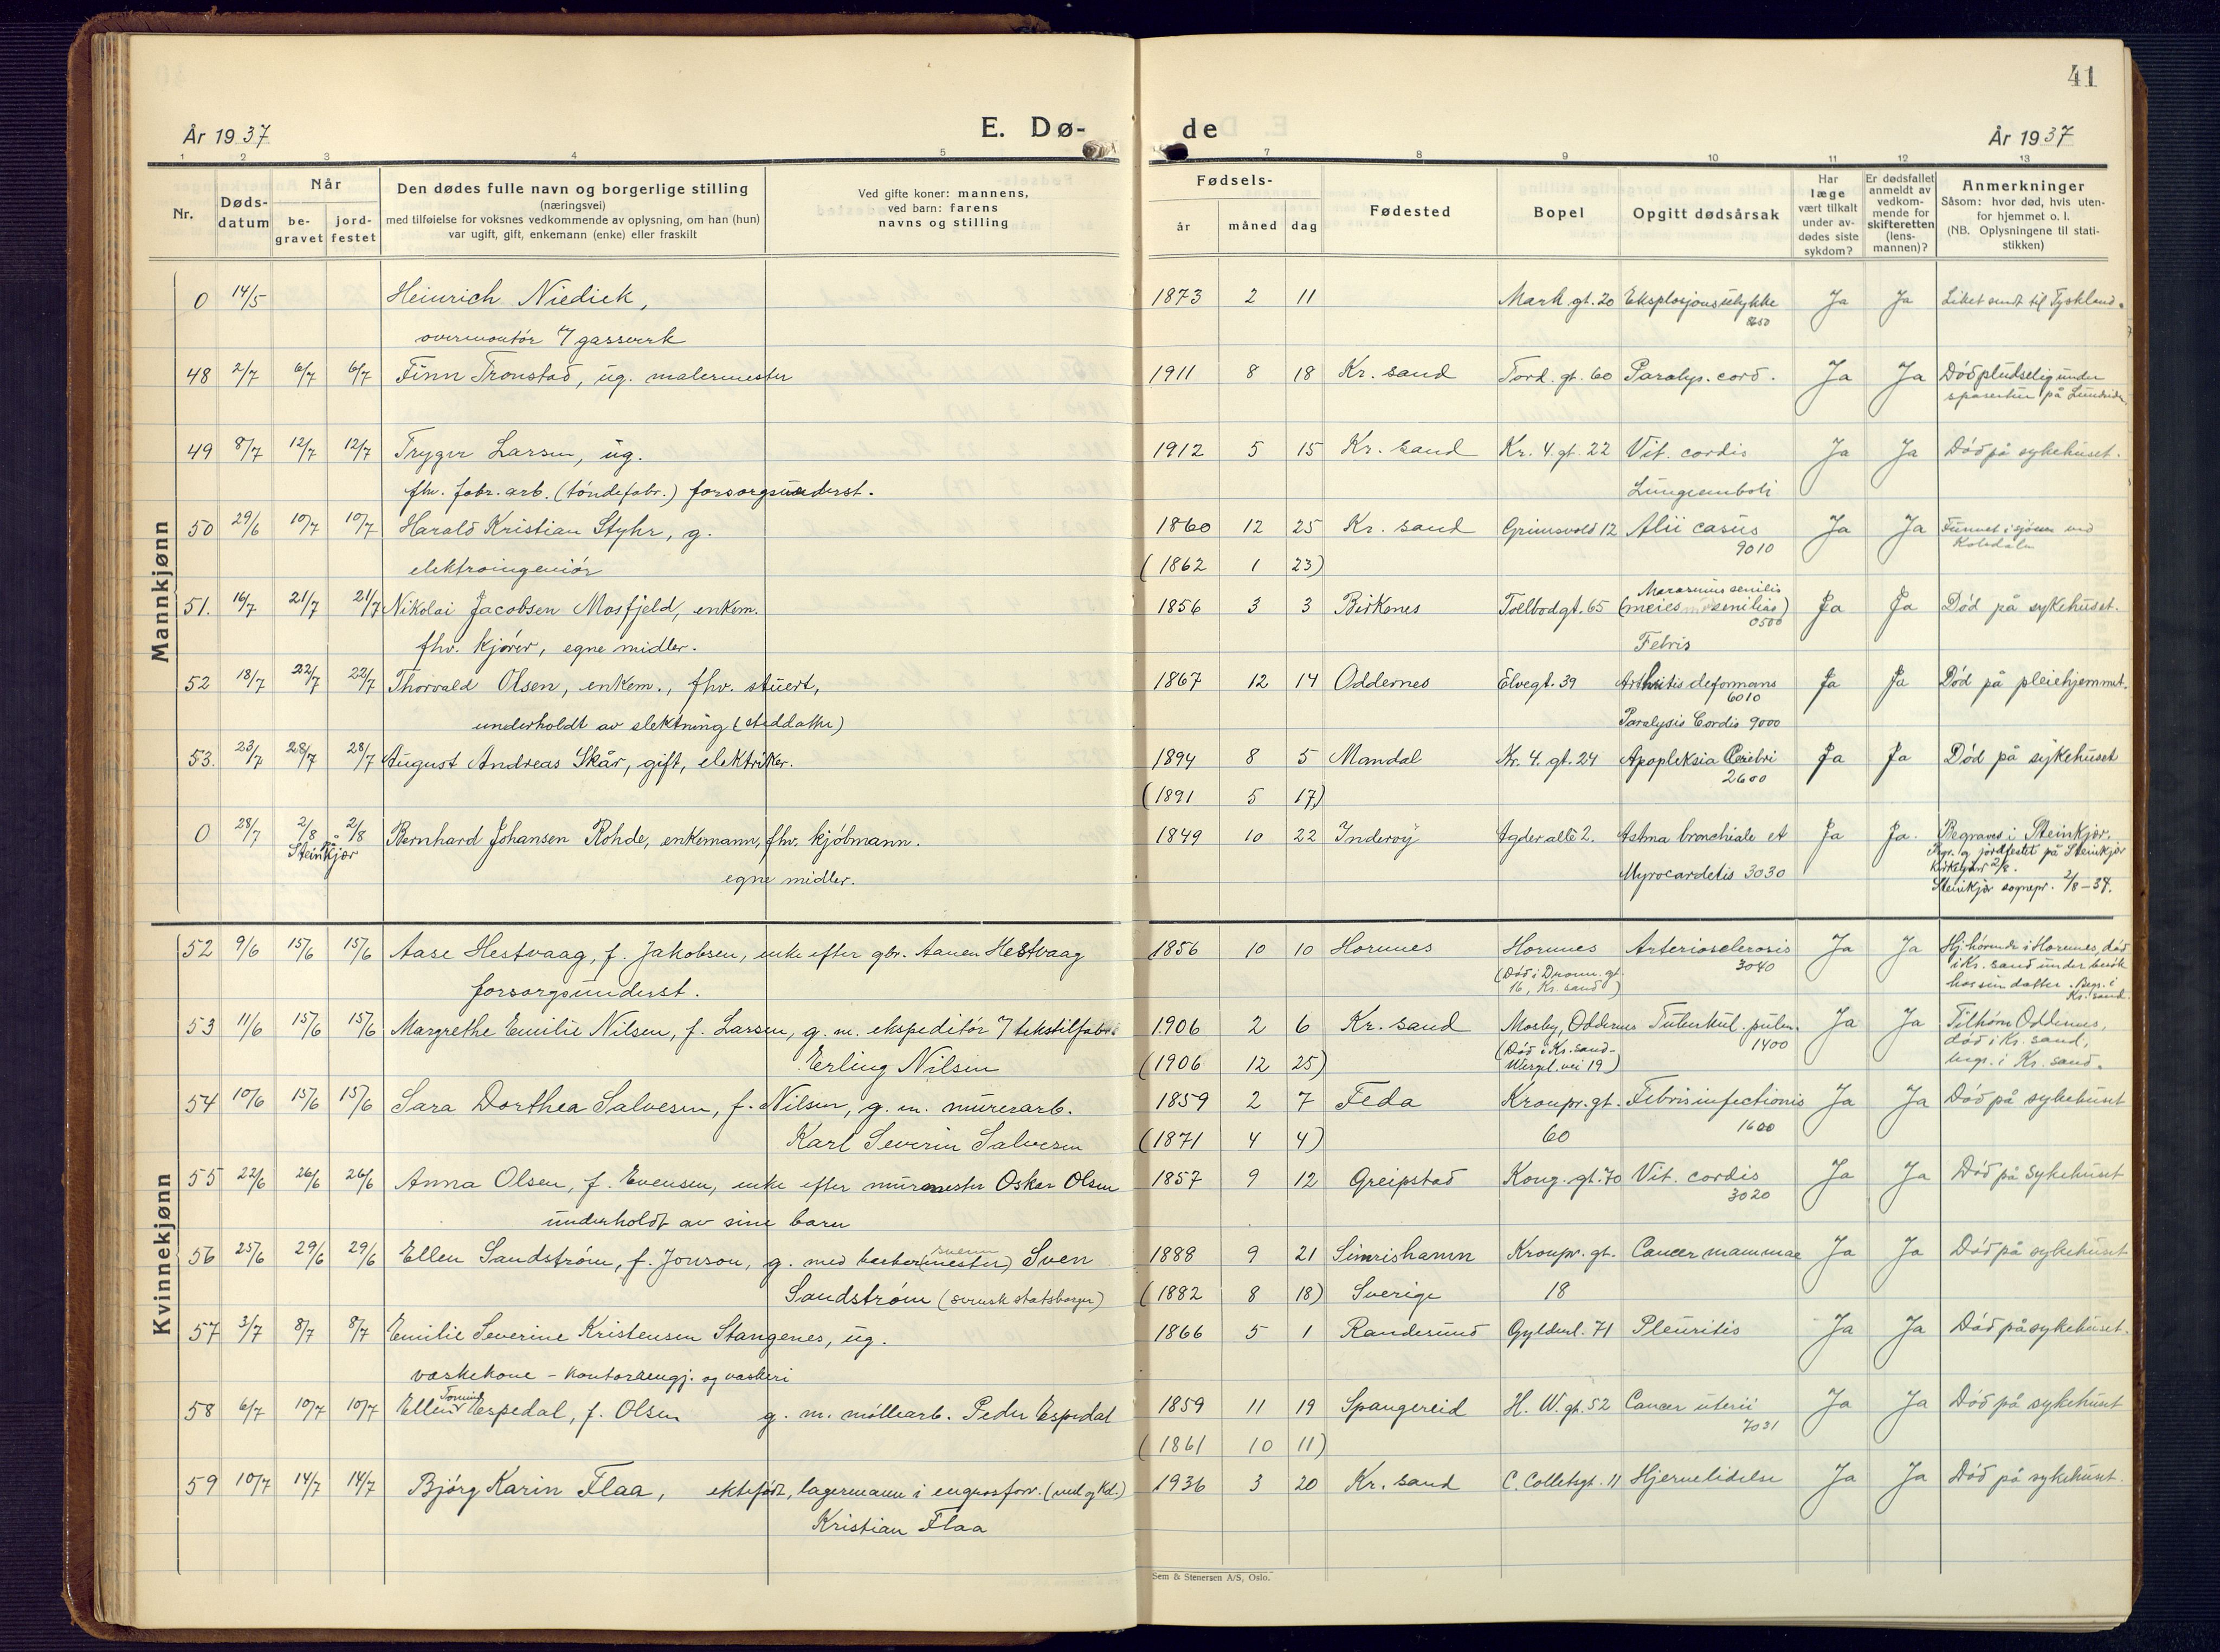 41
År 1937 E. Dø- de År 1937
1 2 3 4 5 7 8 9 10 11 12 13
Nr. Døds-datum Når be-gravet jord-festet
Den dødes fulle navn og borgerlige stilling
(næringsvei)
med tilføielse for voksnes vedkommende av oplysning, om han (hun)
var ugift, gift, enkemann (enke) eller fraskilt
Ved gifte koner: mannens,
ved barn: farens
navns og stilling
Fødsels-
år måned dag
Fødested
Bopel
Opgitt dødsårsak
Har læge vært tilkalt under av-dødes siste sykdom?
Er dødsfallet anmeldt av vedkom-mende for skifteretten (lens-mannen)?
Anmerkninger
Såsom: hvor død, hvis uten-
for hjemmet o. l.
(NB. Oplysningene til stati-
stikken)
Mannkjønn
0 14/5 Heinrich Niedick, 1873 2 11 Mark gt. 20 Eksplosjonsulykke Ja Ja Liket sendt til Tyskland.
overmontör v/ gassverk
48 2/7 6/7 6/7 Finn Tronstad, ug. malermester 1911 8 18 Kr. sand Tord. gt. 60 Paralys. cord. Ja Ja Död pludselig under
spasertur på Lundsiden
49 8/7 12/7 12/7 Trygve Larsen, ug. 1912 5 15 Kr. sand Kr. 4. gt. 22 Vit. cordis Ja Ja Död på sykehuset.
fhv. fabr. arb. (töndefabr.) forsorgsunderst. Lungeemboli
50 29/6 10/7 10/7 Harald Kristian Styhr, g. 1860 12 25 Kr. sand Grimsvold 12 Alii casus Ja Ja Funnet i sjöen ved
9010 Kolsdalen
elektroingeniör (1862 1 23)
51. 16/7 21/7 21/7 Nikolai Jacobsen Mosfjeld, enkem. 1856 3 3 Birkenes Tollbodgt. 65 Marasmus senilis Ja Ja Död på sykehuset.
0500
fhv. kjörer, egne midler. Febris
52 18/7 22/7 22/7 Thorvald Olsen, enkem., fhv. stuert, 1867 12 14 Oddernes Elvegt. 39 Arthritis deformans Ja Ja Död på pleiehjemmet.
6010
underholdt av slektning (steddatter) Paralysis Cordis 9000
53. 23/7 28/7 28/7 August Andreas Skår, gift, elektriker. 1894 8 5 Mandal Kr. 4. gt. 24 Apopleksia Cerebri Ja Ja Död på sykehuset
2600
(1891 5 17)
0 28/7 2/8 2/8 Bernhard Johansen Rohde, enkemann, fhv. kjöbmann. 1849 10 22 Inderöy Agder allé 2. Astma bronchiale et Ja Ja. Begraves i Steinkjer.
på Steinkjær Begr. og jordfestet på Steinkjer
egne midler. Myrocardetis 3030 kirkegård 2/8.
Steinkjer sognepr. 2/8-37.
Kvinnekjønn
52 9/6 15/6 15/6 Aase Hestvaag, f. Jakobsen, enke efter gbr. Aanen Hestvaag 1856 10 10 Hornnes Hornnes Arteriosclerosis Ja Ja Hj. hörende i Hornnes, död
3040 i Kr. sand under besök
forsorgsunderst. (Död i Dronn. gt. 16, Kr. sand) hos sin datter. Begr. i
Kr. sand.
53 11/6 15/6 15/6 Margrethe Emilie Nilsen, f. Larsen, g. m. ekspeditör v/ tekstilfabr. 1906 2 6 Kr. sand Mosby, Oddernes Tuberkul. pulm. Ja Ja Tilhörer Oddernes,
1400 död i Kr. sand,
Erling Nilsen (1906 12 25) (Död i Kr. sand - Wergel. vei 19) begr. i Kr. sand.
54 10/6 15/6 15/6 Sara Dorthea Salvesen, f. Nilsen, g. m. murerarb. 1859 2 7 Feda Kronpr. gt. Febris infectionis Ja Ja Död på sykehuset
1600
Karl Severin Salvesen (1871 4 4) 60
55 22/6 26/6 26/6 Anna Olsen, f. Evensen, enke efter murmester Oskar Olsen 1857 9 12 Greipstad Kong. gt. 70 Vit. cordis Ja Ja Död på sykehuset
3020
underholdt av sine barn
56 25/6 29/6 29/6 Ellen Sandström, f. Jonson, g. med barber(mester) Sven 1888 9 21 Simrishamn Kronpr. gt. Cancer mammae Ja Ja Död på sykehuset
svenn
Sandström (svensk statsborger) (1882 8 18) Sverige 18
57 3/7 8/7 8/7 Emilie Severine Kristensen Stangenes, ug. 1866 5 1 Randesund Gyldenl. 71 Pleuritis Ja Ja Död på sykehuset.
vaskekone - kontorrengj. og vaskeri
58 6/7 10/7 10/7 Ellen Espedal, f. Olsen g. m. möllearb. Peder Espedal 1859 11 19 Spangereid H. W. gt. 52 Cancer uterii Ja Ja Död på sykehuset
7031
(1861 10 11)
59 10/7 14/7 14/7 Bjørg Karin Flaa, ektefödt, lagermann i engrosforr. (ved og kol.) 1936 3 20 Kr. sand C. Colletsgt. 11 Hjernelidelse Ja Ja Död på sykehuset.
Kristian Flaa
Sem & Stenersen A/S, Oslo.